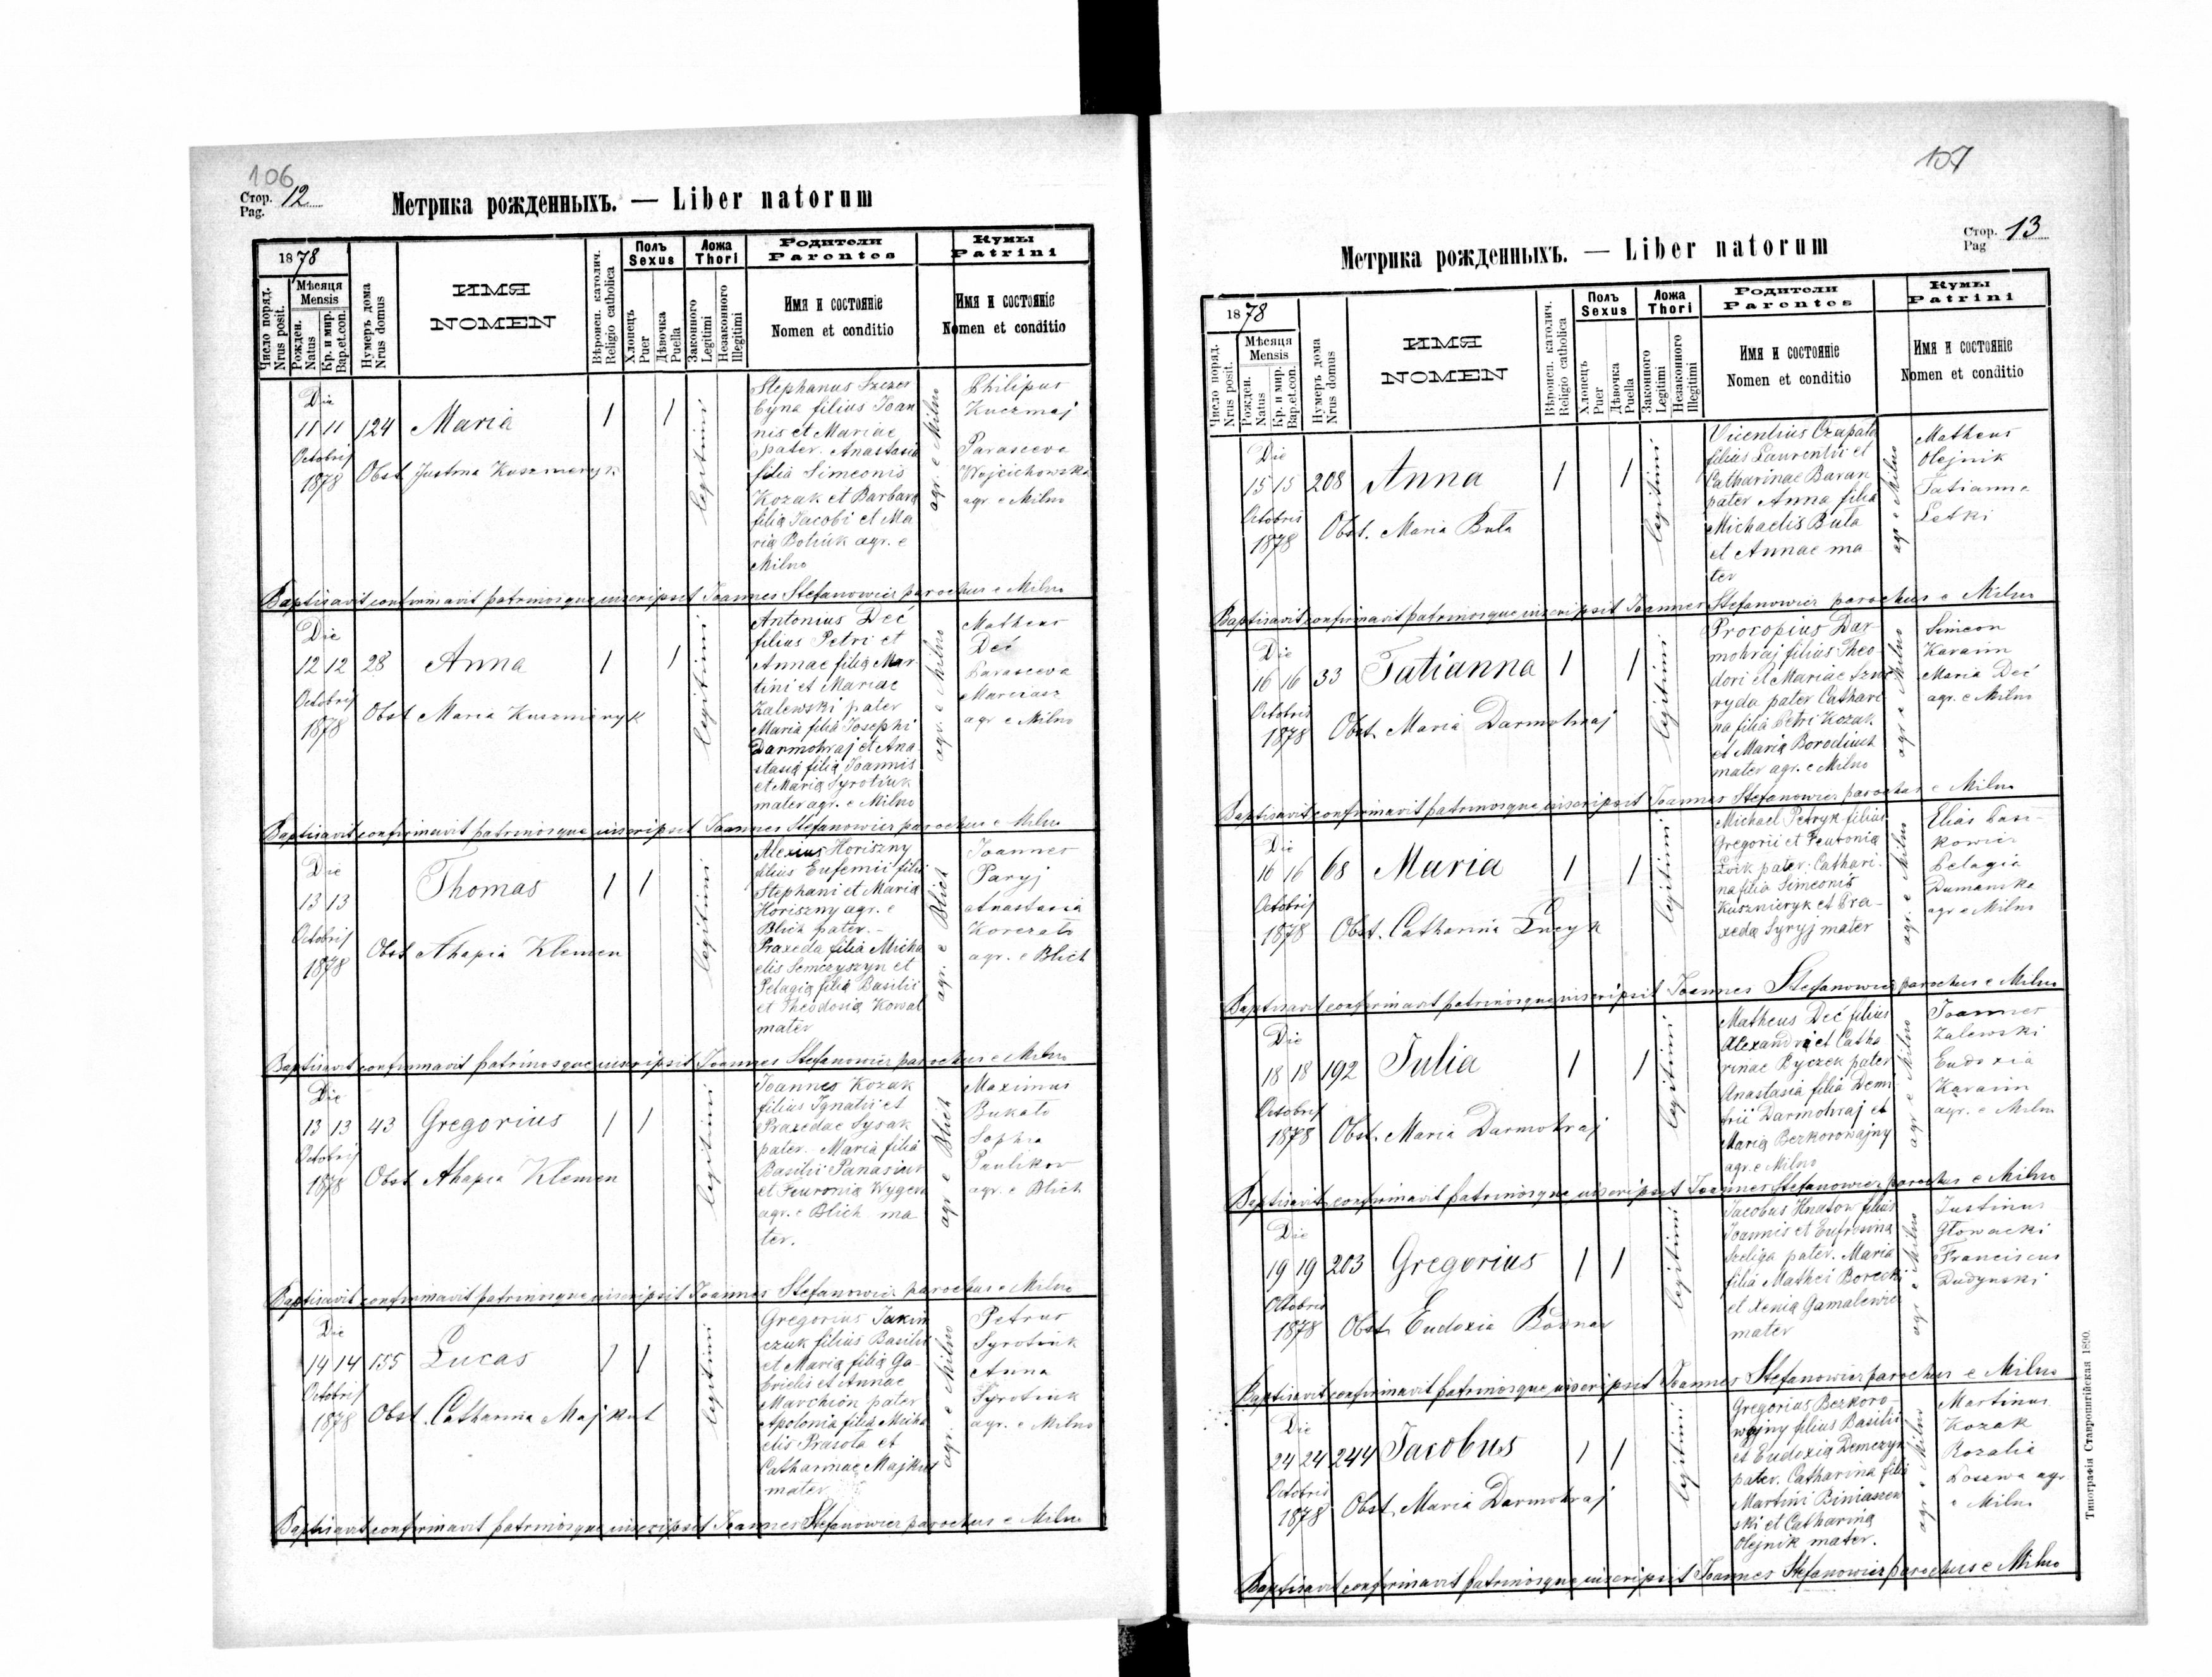 106
Стор. 12
Pag.
Метрика рожденныхъ. — Liber natorum
1878
Число поряд.
Nrus posit.
Мѣсяця
Mensis
Рожден.
Natus
Кр. и мир.
Bap.et.con.
Нумеръ дома
Nrus domus
ИМЯ
NOMEN
Вѣроисп. католич.
Religio catholica
Полъ
Sexus
Хлопець
Puer
Дѣвочка
Puella
Ложа
Thori
Законного
Legitimi
Незаконного
Illegitimi
Родители
Parentes
Имя и состоянiе
Nomen et conditio
Кумы
Patrini
Имя и состоянiе
Nomen et conditio
Die
11 11 124 Maria 1 1
Octobris
1878 Obst Justina Kuszneryk
legitimi
Stephanus
filius Joan
nis et Mariae
pater. Anastasia
filia Simeonis
Kozak et Barbara
filia Jacobi et Ma
ria agr. e
Milno
agr. e Milno
Philipus
Kuczmaj
Parasceva
Wojcichowska
agr e Milno
Baptisavit confirmavit patrinosque inscripsit Joannes Stefanowicz parochus e Milno
Die
12 12 28 Anna 1 1
Octobris
1878 Obst Maria Kuszneryk
legitimi
Antonius Deć
filius Petri et
Annae filia Mar
tini et Mariae
Zalewski pater
Maria filia Josephi
Darmohraj et Ana
stasia filia Joannis
et Maria Syrotiuk
mater agr. e Milno
agr. e Milno
Matheus
Deć
Parasceva
Marciasz
agr e Milno
Baptisavit confirmavit patrinosque inscripsit Joannes Stefanowicz parochus e Milno
Die
13 13 Thomas 1 1
Octobris
1878 Obst Ahapia Klemen
legitimi
Alexius Horiszny
filius Eufemii filii
Stephani et Maria
Horiszny agr. e
Blich pater. -
Praxeda filia Micha
elis Semczyszyn et
Pelagia filia Basilii
et Theodosia Kowal
mater
agr. e Blich
Joannes
Paryj
Anastasia
agr. e Blich
Baptisavit confirmavit patrinosque inscripsit Joannes Stefanowicz parochus e Milno
Die
13 13 43 Gregorius 1 1
Octobris
1878 Obst Ahapia Klemen
legitimi
Joannes Kozak
filius Ignatii et
Praxedae Sysak
pater. Maria filia
Basilii Panasiuk
et Feuronia
agr. e Blich ma
ter.
agr e Blich
Maximus
Bukato
Sophia
Paulikow
agr. e Blich
Baptisavit confirmavit patrinosque inscripsit Joannes Stefanowicz parochus e Milno
Die
14 14 155 Lucas 1 1
Octobris
1878 Obst. Catharina Majkut
legitimi
Gregorius Jakim
czuk filius Basilii
et Maria filia Ga-
brielis et Annae
Marchion pater
Apolonia filia Micha
elis Prasota et
Catharinae Majkut
mater
agr. e Milno
Petrus
Syrotiuk
Anna
Syrotiuk
agr. e Milno
Baptisavit confirmavit patrinosque inscripsit Joannes Stefanowicz parochus e Milno
107
Стор. 13
Pag
Метрика рожденныхъ. — Liber natorum
1878
Число поряд.
Nrus posit.
Мѣсяця
Mensis
Рожден.
Natus
Кр. и мир.
Bap.et.con.
Нумеръ дома
Nrus domus
ИМЯ
NOMEN
Вѣроисп. католич.
Religio catholica
Полъ
Sexus
Хлопець
Puer
Дѣвочка
Puella
Ложа
Thori
Законного
Legitimi
Незаконного
Illegitimi
Родители
Parentes
Имя и состоянiе
Nomen et conditio
Кумы
Patrini
Имя и состоянiе
Nomen et conditio
Die
15 15 208 Anna 1 1
Octobris
1878 Obst. Maria Buta
legitimi
Vicentius Czapata
filius Laurentii et
Catharinae Baran
pater Anna filia
Michaelis Buta
et Annae ma
ter
agr e Milno
Matheus
Olejnik
Tatianna
Letki
Baptisavit confirmavit patrinosque inscripsit Joannes Stefanowicz parochus e Milno
Die
16 16 33 Tatianna 1 1
Octobris
1878 Obst. Maria Darmohraj
legitimi
Procopius Dar-
mohraj filius Theo-
dori et Mariae
pater Cathari
na filia Petri Kozak
et Maria Borodiuk
mater agr. e Milno
agr e Milno
Simeon
Karaim
Maria Deć
agr. e Milno
Baptisavit confirmavit patrinosque inscripsit Joannes Stefanowicz parochus e Milno
Die
16 16 68 Maria 1 1
Octobris
1878 Obst. Catharina
legitimi
Michael Petryk filius
Gregorii et Feuronia
pater. Cathari-
na filia Simeonis
Kuszneryk et Pra-
xeda Syryj mater
agr. e Milno
Elias Pasi-
kowicz
Pelagia
Dumanska
agr e Milno
Baptisavit confirmavit patrinosque inscripsit Joannes Stefanowicz parochus e Milno
Die
18 18 192 Julia 1 1
Octobris
1878 Obst. Maria Darmohraj
legitimi
Matheus Deć filius
Alexandri et Catha
rinae Byczek pater
Anastasia filia Demi
trii Darmohraj et
Maria Bezkorowajny
agr. e Milno
agr e Milno
Joannes
Zalewski
Eudoxia
Karaim
agr. e Milno
Baptisavit confirmavit patrinosque inscripsit Joannes Stefanowicz parochus e Milno
Die
19 19 203 Gregorius 1 1
Octobris
1878 Obst. Eudoxia Bodnar
legitimi
Jacobus Hnatow filius
Joannis et Eufrosina
Szeliga pater. Maria
filia Mathei Borecki
et Xenia Gamalewicz
mater
agr e Milno
Justinus
Głowacki
Franciscus
Dudynski
Baptisavit confirmavit patrinosque inscripsit Joannes Stefanowicz parochus e Milno
Die
24 24 244 Jacobus 1 1
Octobris
1878 Obst. Maria Darmohraj
legitimi
Gregorius Bezkoro-
wajny filius Basilii
et Eudoxia Demczyk
pater. Catharina filia
Martini Biniaszew
ski et Catharina
Olejnik mater.
agr e Milno
Martinus
Kozak
Rozalia
Kosawa agr
e Milno
Baptisavit confirmavit patrinosque inscripsit Joannes Stefanowicz parochus e Milno
Типографiя Ставропигiйская 1890.